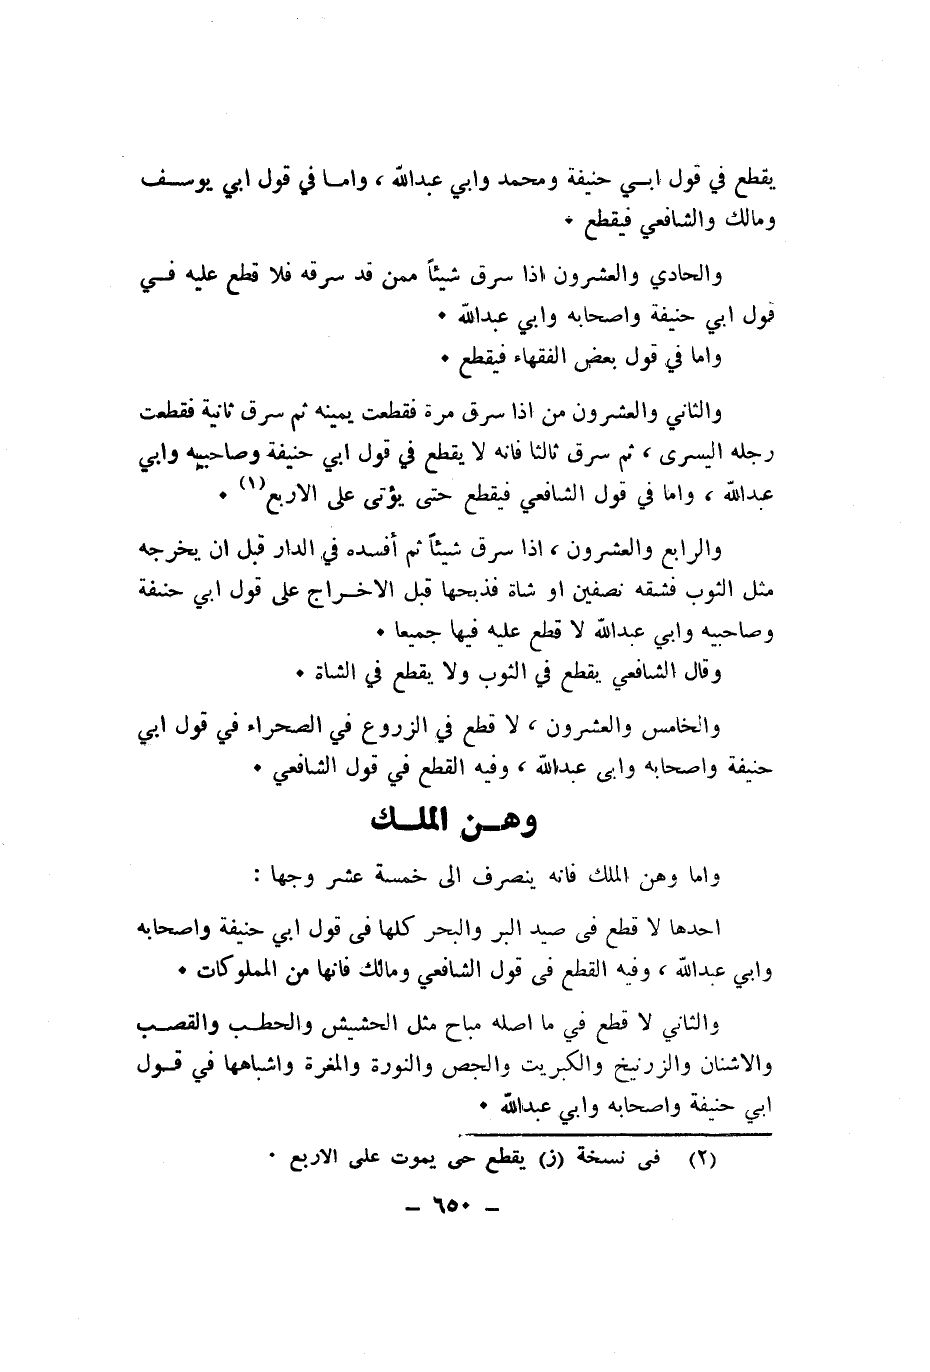 يقطع في قول ابـي حنيفة ومحمد وابي عبدالله ، وامـا في قول ابي يوسـف
ومالك والشافعي فيقطع ٠
والحادي والعشرون اذا سرق شيئاً ممن قد سرقه فلا قطع عليه فـي
قول ابي حنيفة واصحابه وابي عبدالله ٠
واما في قول بعض الفقهاء فيقطع ٠
والثاني والعشرون من اذا سرق مرة فقطعت يمينه ثم سرق ثانية فقطعت
رجله اليسرى ، ثم سرق ثالثا فانه لا يقطع في قول ابي حنيفة وصاحبيه وابي
عبدالله ، واما في قول الشافعي فيقطع حتى يؤتى على الاربع(١) ٠
والرابع والعشرون ، اذا سرق شيئاً ثم أفسده في الدار قبل ان يخرجه
مثل الثوب فشقه نصفين او شاة فذبحها قبل الاخـراج على قول ابي حنيفة
وصاحبيه وابي عبدالله لا قطع عليه فيها جميعا ٠
وقال الشافعي يقطع في الثوب ولا يقطع في الشاة ٠
والخامس والعشرون ، لا قطع في الزروع في الصحراء في قول ابي
حنيفة واصحابه وابى عبدالله ، وفيه القطع في قول الشافعي ٠
وهـن الملـك
واما وهن الملك فانه ينصرف الى خمسة عشر وجها :
احدها لا قطع فى صيد البر والبحر كلها فى قول ابي حنيفة واصحابه
وابي عبدالله ، وفيه القطع فى قول الشافعي ومالك فانها من المملوكات ٠
والثاني لا قطع في ما اصله مباح مثل الحشيش والحطـب والقصـب
والاشنان والزرنيخ والكبريت والجص والنورة والمغرة واشباهها في قـول
ابي حنيفة واصحابه وابي عبدالله ٠
(٢) فى نسخة (ز) يقطع حى يموت على الاربع ٠
ـ ٦٥٠ ـ